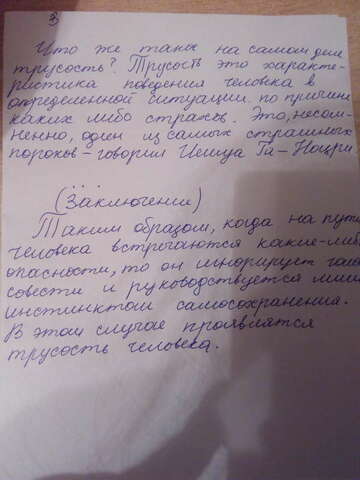 3
Что же такое на самом деле
трусость? Трусость это характе-
ристика поведения человека в
определенной ситуации по причине
каких либо страхов. Это, несом-
ненно, один из самых страшных
пороков - говорил Иешуа Га-Ноцри
...
(Заключение)
Таким образом, когда на пути
человека встречаются какие-либо
опасности, то он игнорирует голос
совести и руководствуется лишь
инстинктом самосохранения.
В этом случае проявлятся
трусость человека.